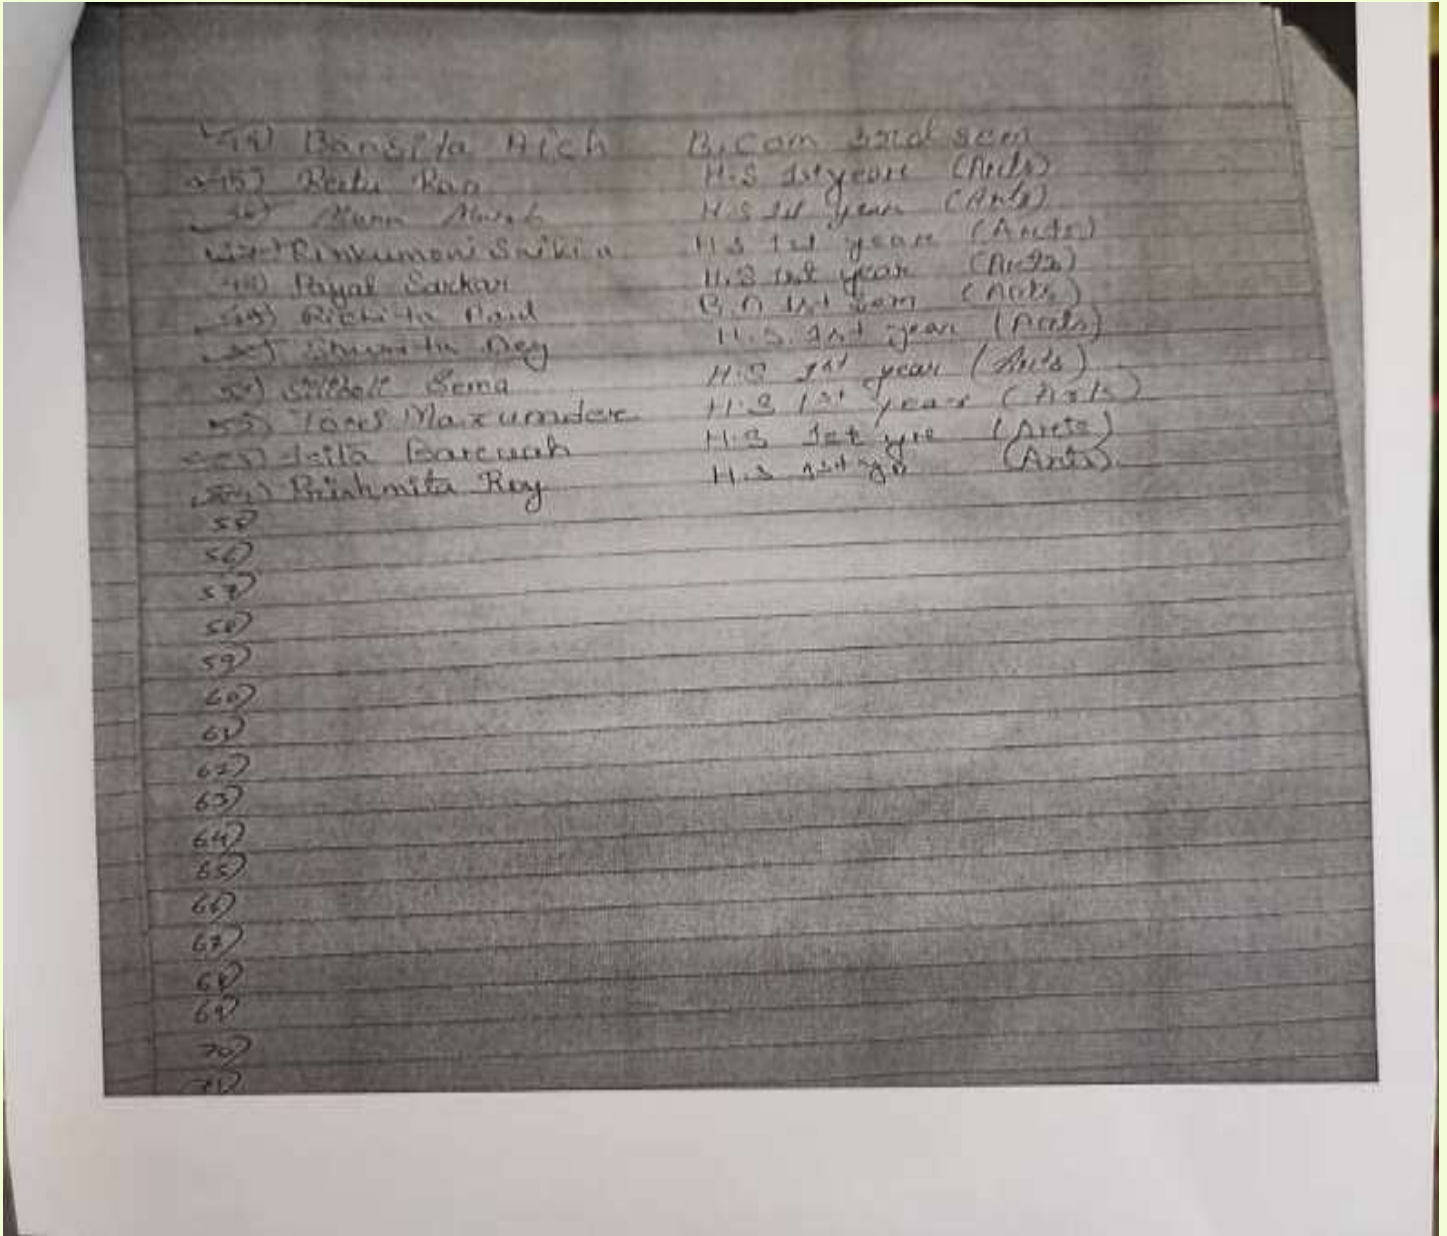 44) Bansita Aich B.Com 3rd sem
45) Reetu Rao H.S 1st year (Arts)
46) H.S 1st year (Arts)
47) Rinkumoni Saikia H.S 1st year (Arts)
48) Payal Sarkar H.S 1st year (Arts)
49) Richita Paul B.A 1st Sem (Arts)
50) Dey H.S. 1st year (Arts)
51) Sema H.S 1st year (Arts)
52) Mazumder H.S 1st year (Arts)
53) Baruah H.S 1st yr (Arts)
54) Roy H.S 1st yr (Arts).
55)
56)
57)
58)
59)
60)
61)
62)
63)
64)
65)
66)
67)
68)
69)
70)
71)